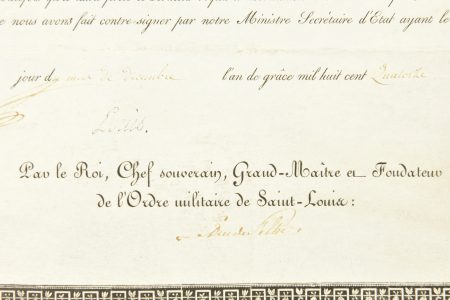 e nous avons fait contre-signer par notre Ministre Secrétaire d'Etat ayant le
jour d mois de décembre l'an de grâce mil huit cent Quatorze
Louis.
Par le Roi, Chef souverain, Grand-Maître et Fondateur
de l'Ordre militaire de Saint-Louis :